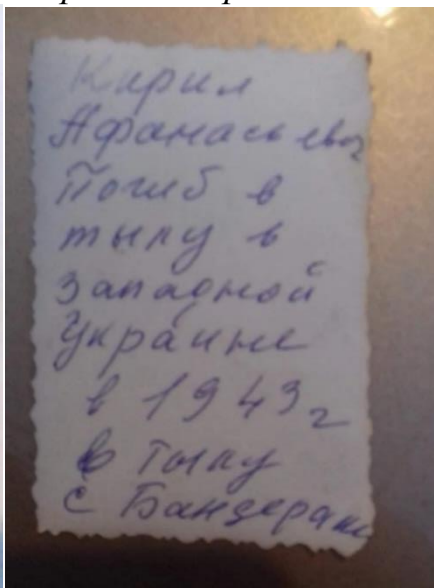 Кирил
Афанасьевоч
Погиб в
тылу в
Западной
Украине
в 1943 г
в тылу
с Бандерами